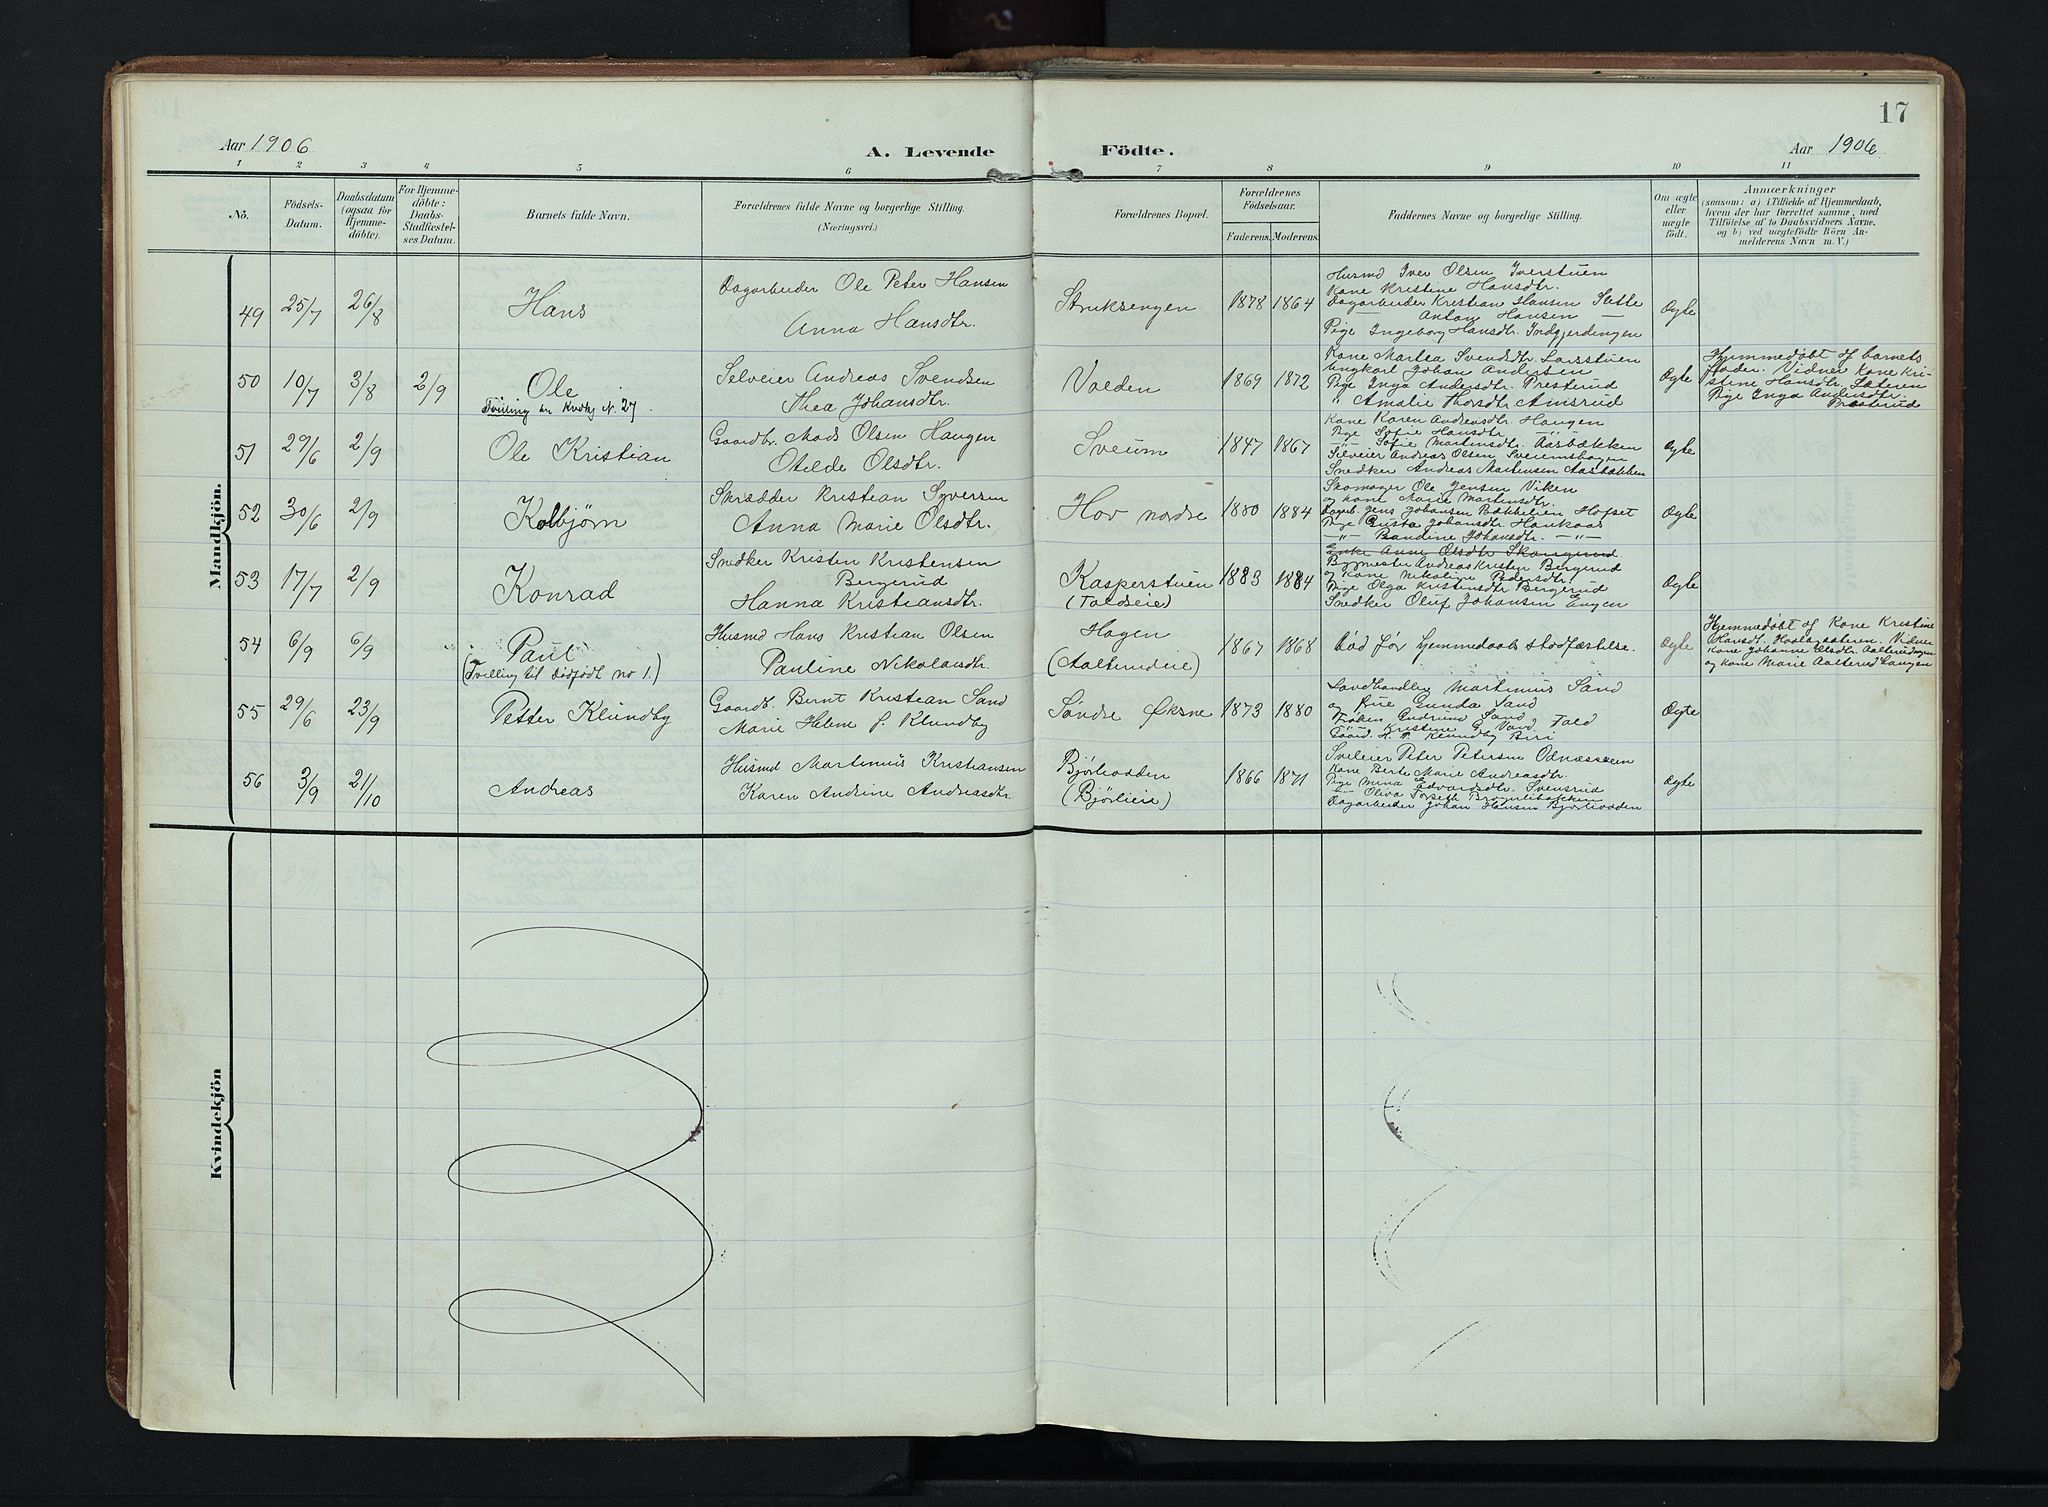 17
Aar 1906
A. Levende Födte.
Aar 1906
1 2 3 4 5 6 7. 8 9 10 11
No.
Födsels-Datum.
Daabsdatum (ogsaa for Hjemme-döbte).
For Hjemme-döbte: Daabs-Stadfæstel-ses Datum.
Barnets fulde Navn.
Forældrenes fulde Navne og borgerlige Stilling.
(Næringsvei.)
Forældrenes Bopæl.
Forældrenes Födselsaar.
Faderens. Moderens.
Faddernes Navne og borgerlige Stilling.
Om ægte eller uægte födt.
Anmærkninger
(saasom: a) i Tilfælde af Hjemmedaab,
hvem der har forrettet samme, med
Tilföielse af to Daabsvidners Navne.
og b) ved uægtefödte Börn An-
melderens Navn m. V.)
Mandkjön.
49 25/7 26/8 Hans
Dagarbeider Ole Peter Hansen
Anna Hansdtr.
Struksengen 1878 1864
Husmd Iver Olsen Iverstuen
Kone Kristine Hansdtr.
Dagarbeider Kristian Hansen Sætte
— Anton Hansen —
Pige Ingeborg Hansdtr. Indgjerdingen
Ægte
50 10/7 3/8 2/9 Ole
Tvilling
Selveier Andreas Svendsen
Thea Johansdtr.
Volden 1869 1872
Kone Martea Svendsdtr. Larsstuen
Ungkarl Johan Andersen
Pige Inga Andersdtr. Presterud
" Amalie Thorsdtr. Amsrud
Ægte
Hjemmedøbt af barnets
fader. Vidner Kone Kri-
stine Hansdtr. Sæteren
Pige Inga Andersdtr.
Presterud
51 29/6 2/9 Ole Kristian
Gaardbr. Mads Olsen Haugen
Otelde Olsdtr.
Sveum 1847 1867
Kone Karen Andreasdtr. Haugen
Pige Sofie Hansdtr. —"—
—"— Sofie Martinsdtr. Aasbækken
Selveier Andreas Olsen Sveumshagen
Snedker Andreas Martinsen Aasbækken
Ægte
52 30/6 2/9 Kolbjørn
Skrædder Kristian Syversen
Anna Marie Olsdtr.
Hov nedre 1880 1884
Skomager Ole Jensen Viken
og kone Marie Martinsdtr.
Dagarb. Jens Johansen Bakkelien Hofset
Pige Gusta Johansdtr. Haukaas
—"— Bandine Johansdtr. —"—
Ægte
53 17/7 2/9 Konrad
Snedker Kristen Kristensen
Bergerud
Hanna Kristiansdtr.
Kasperstuen
(Foldseie)
1883 1884
Enke Anne Olsdtr
Bygmester Andreas Kristen Bergerud
og kone Nikoline Pedersdtr.
Pige Olga Kristensdtr Bergerud
Snedker Oluf Johansen Engen
Ægte
54 6/9 6/9 Paul
(Tvilling til dødfødt no 1.)
Husmd Hans Kristian Olsen
Pauline Nikolaisdtr.
Hagen
(Aalterudeie)
1867 1868
Død før hjemmedaabs stadfæstelse.
Ægte
Hjemmedøbt af Kone Kristine
Hansdt. Vidner
Kone Johanne Olsdtr. Aalterudhagen
og kone Marie Aalterud Haugen
55 29/6 23/9 Petter Klundby
Gaardb. Bernt Kristian Sand
Marie Helene f. Klundby
Søndre Øksne 1873 1880
Landhandler Martinius Sand
og frue Gunda Sand
Frøken Gudrun Sand
" Kristine G. Vand. Fald
Gaard. K. P. Klundby Biri
Ægte
56 3/9 21/10 Andreas
Husmd Martinius Kristiansen
Karen Andrine Andreasdtr.
Bjørliodden
(Bjørlieie)
1866 1871
Sveleier Peter Petersen Odnæsseem
Kone Berte Marie Andreasdtr.
Pige Mina Edvardsdtr. Svensrud
—"— Oliva Torseth
Dagarbeider Johan Hansen Bjørliodden
Ægte
Kvindekjön